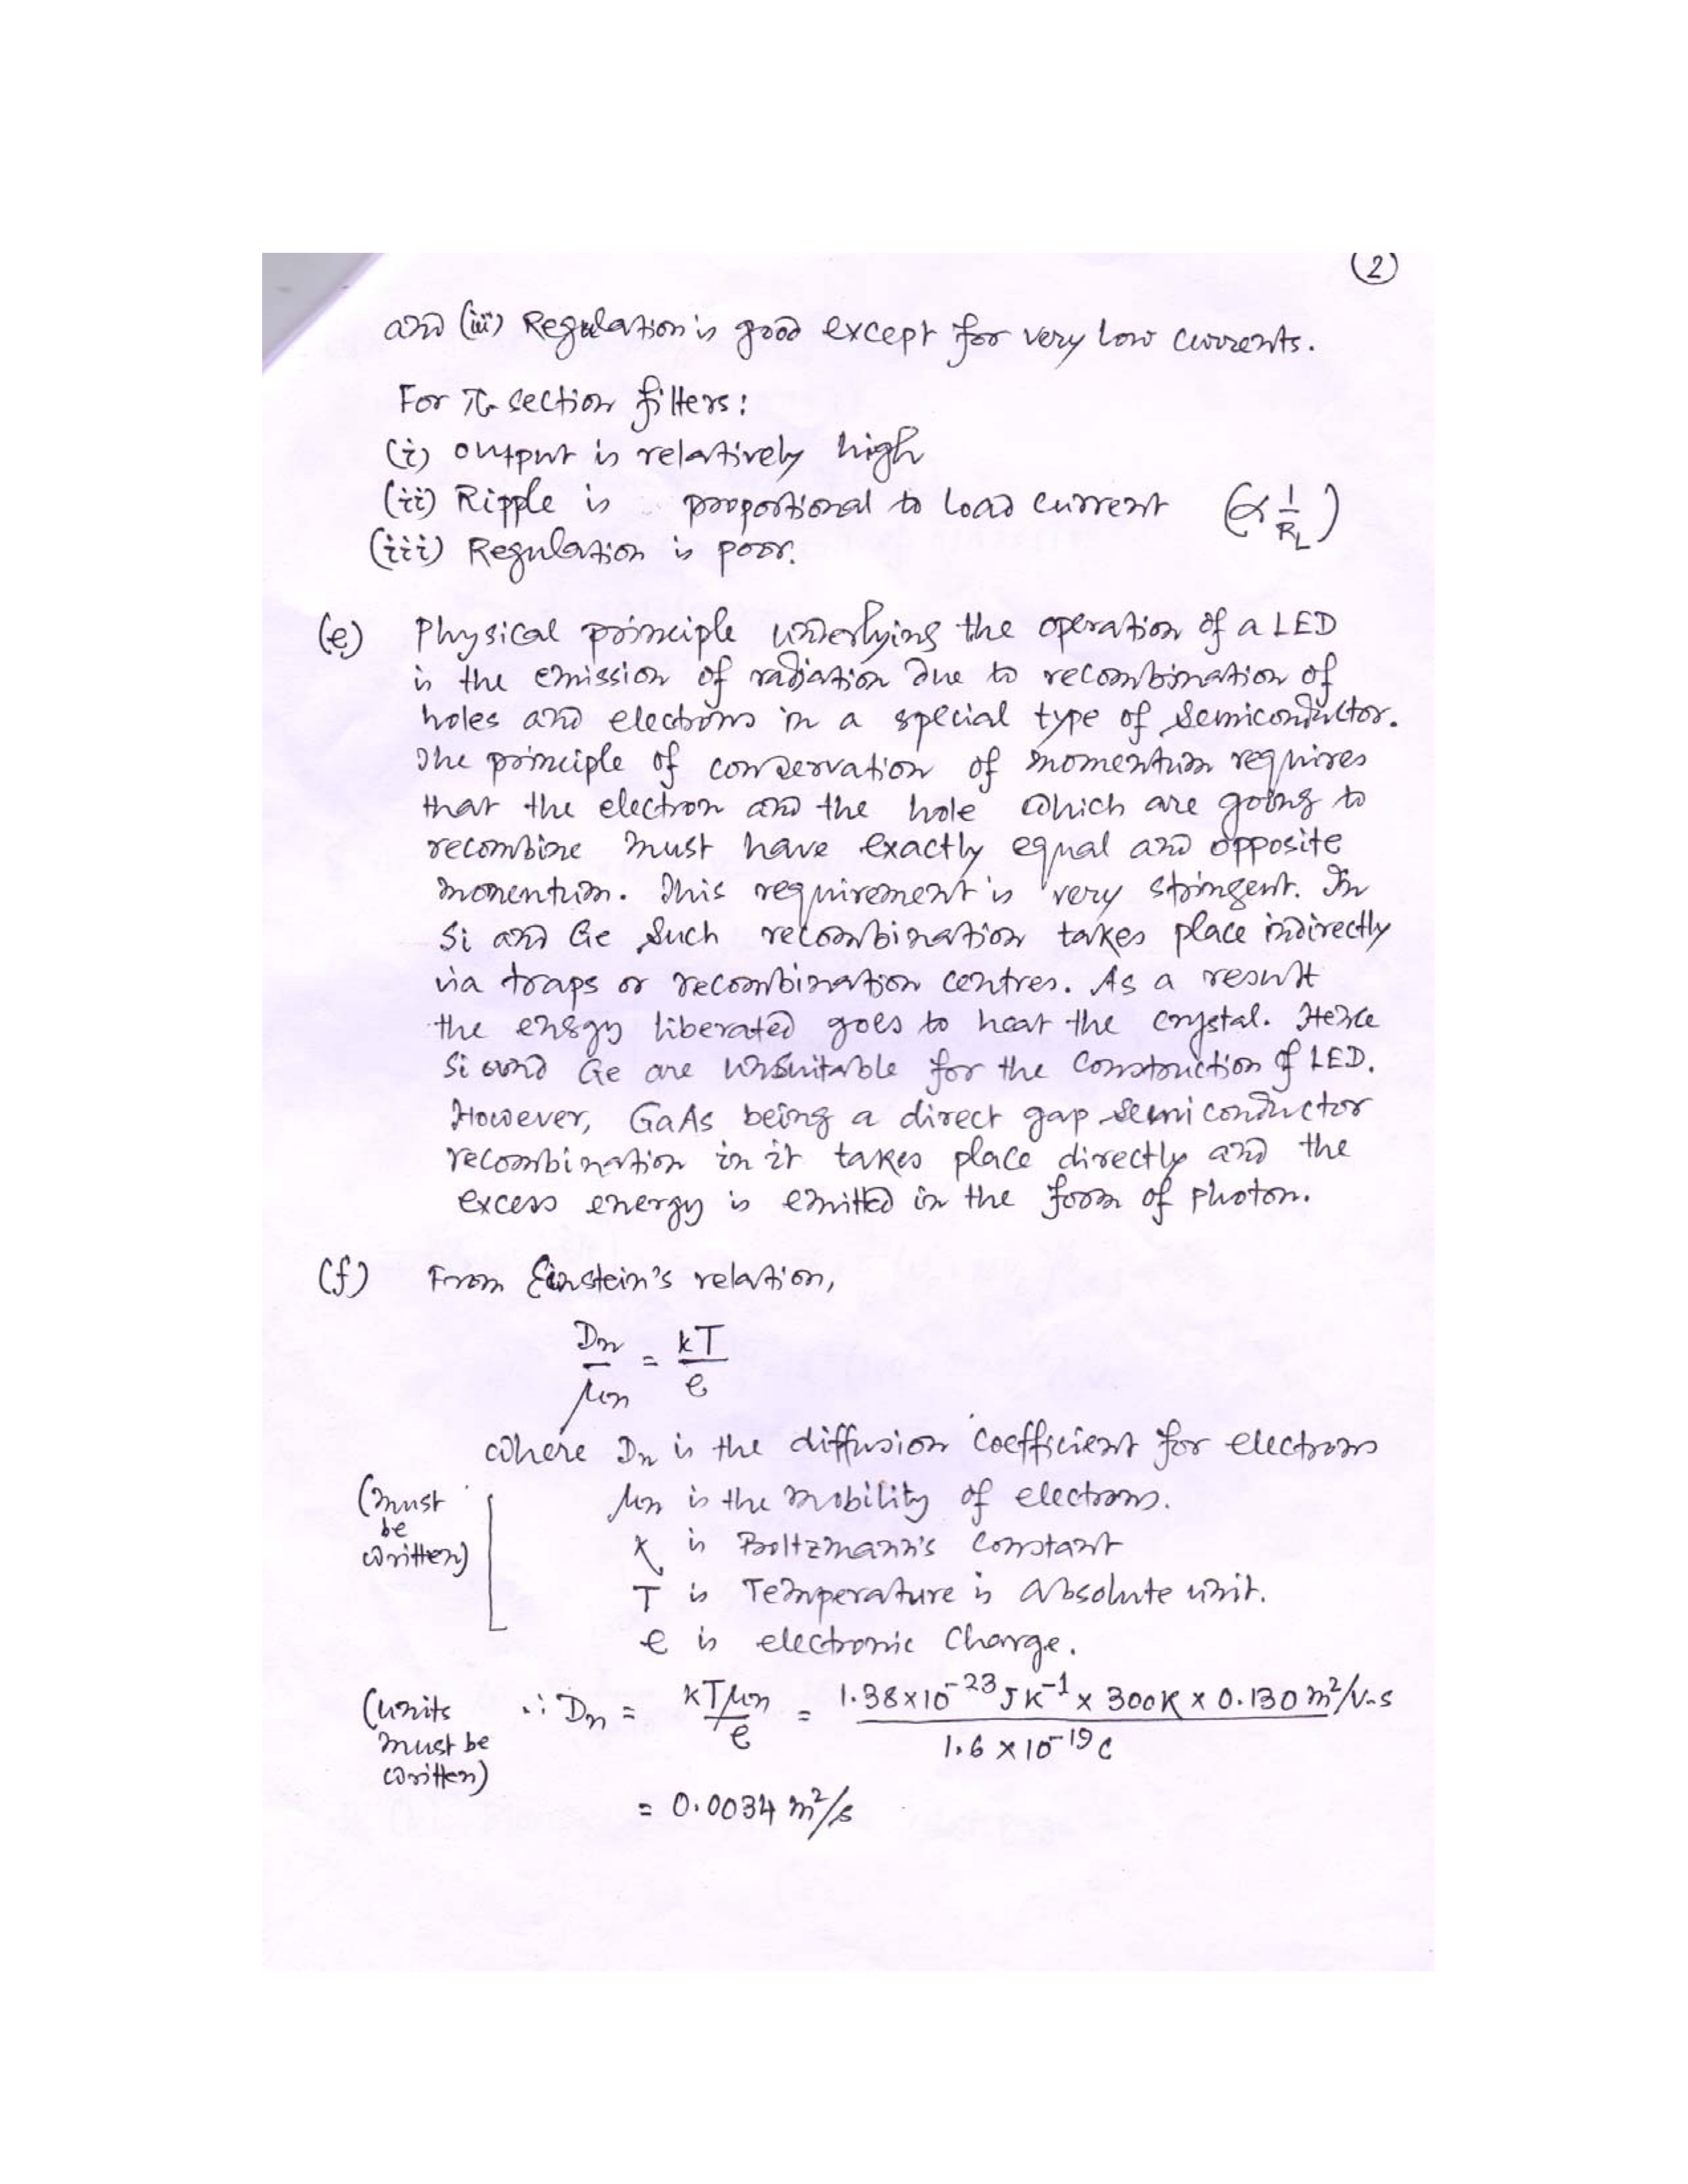 (2)
and (iii) Regulation is good except for very low currents.
For π-section filters:
(i) output is relatively high
(ii) Ripple is proportional to load current (∝ 1/R_L)
(iii) Regulation is poor.
(e) Physical principle underlying the operation of a LED
is the emission of radiation due to recombination of
holes and electrons in a special type of semiconductor.
The principle of conservation of momentum requires
that the electron and the hole which are going to
recombine must have exactly equal and opposite
momentum. This requirement is very stringent. In
Si and Ge such recombination takes place indirectly
via traps or recombination centres. As a result
the energy liberated goes to heat the crystal. Hence
Si and Ge are unsuitable for the construction of LED.
However, GaAs being a direct gap semiconductor
recombination in it takes place directly and the
excess energy is emitted in the form of photon.
(f) From Einstein's relation,
Dn/μn = kT/e
where Dn is the diffusion coefficient for electrons
(must be written) μn is the mobility of electrons.
k is Boltzmann's constant
T is Temperature is absolute unit.
e is electronic charge.
(units must be written) ∴ Dn = kTμn/e = 1.38×10⁻²³ J K⁻¹ × 300K × 0.130 m²/V-s / 1.6 × 10⁻¹⁹ C
= 0.0034 m²/s